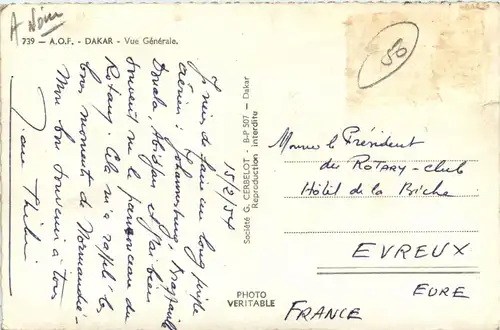 A Noir
50
739 — A.O.F. - DAKAR - Vue Générale.
15/2/54
Je viens de faire un long périple
aérien : Johannesburg - Brazzaville
Douala, Abidjan et j'ai bien
souvent vu le panonceau du
Rotary. Cela m'a rappelé les
bons moments de Normandie.
Mon bon souvenir à tous
Société G. CERBELOT - B-P 507 - Dakar
Reproduction interdite
PHOTO
VERITABLE
Monsieur le Président
du ROTARY-club
Hôtel de la Biche
EVREUX
EURE
FRANCE